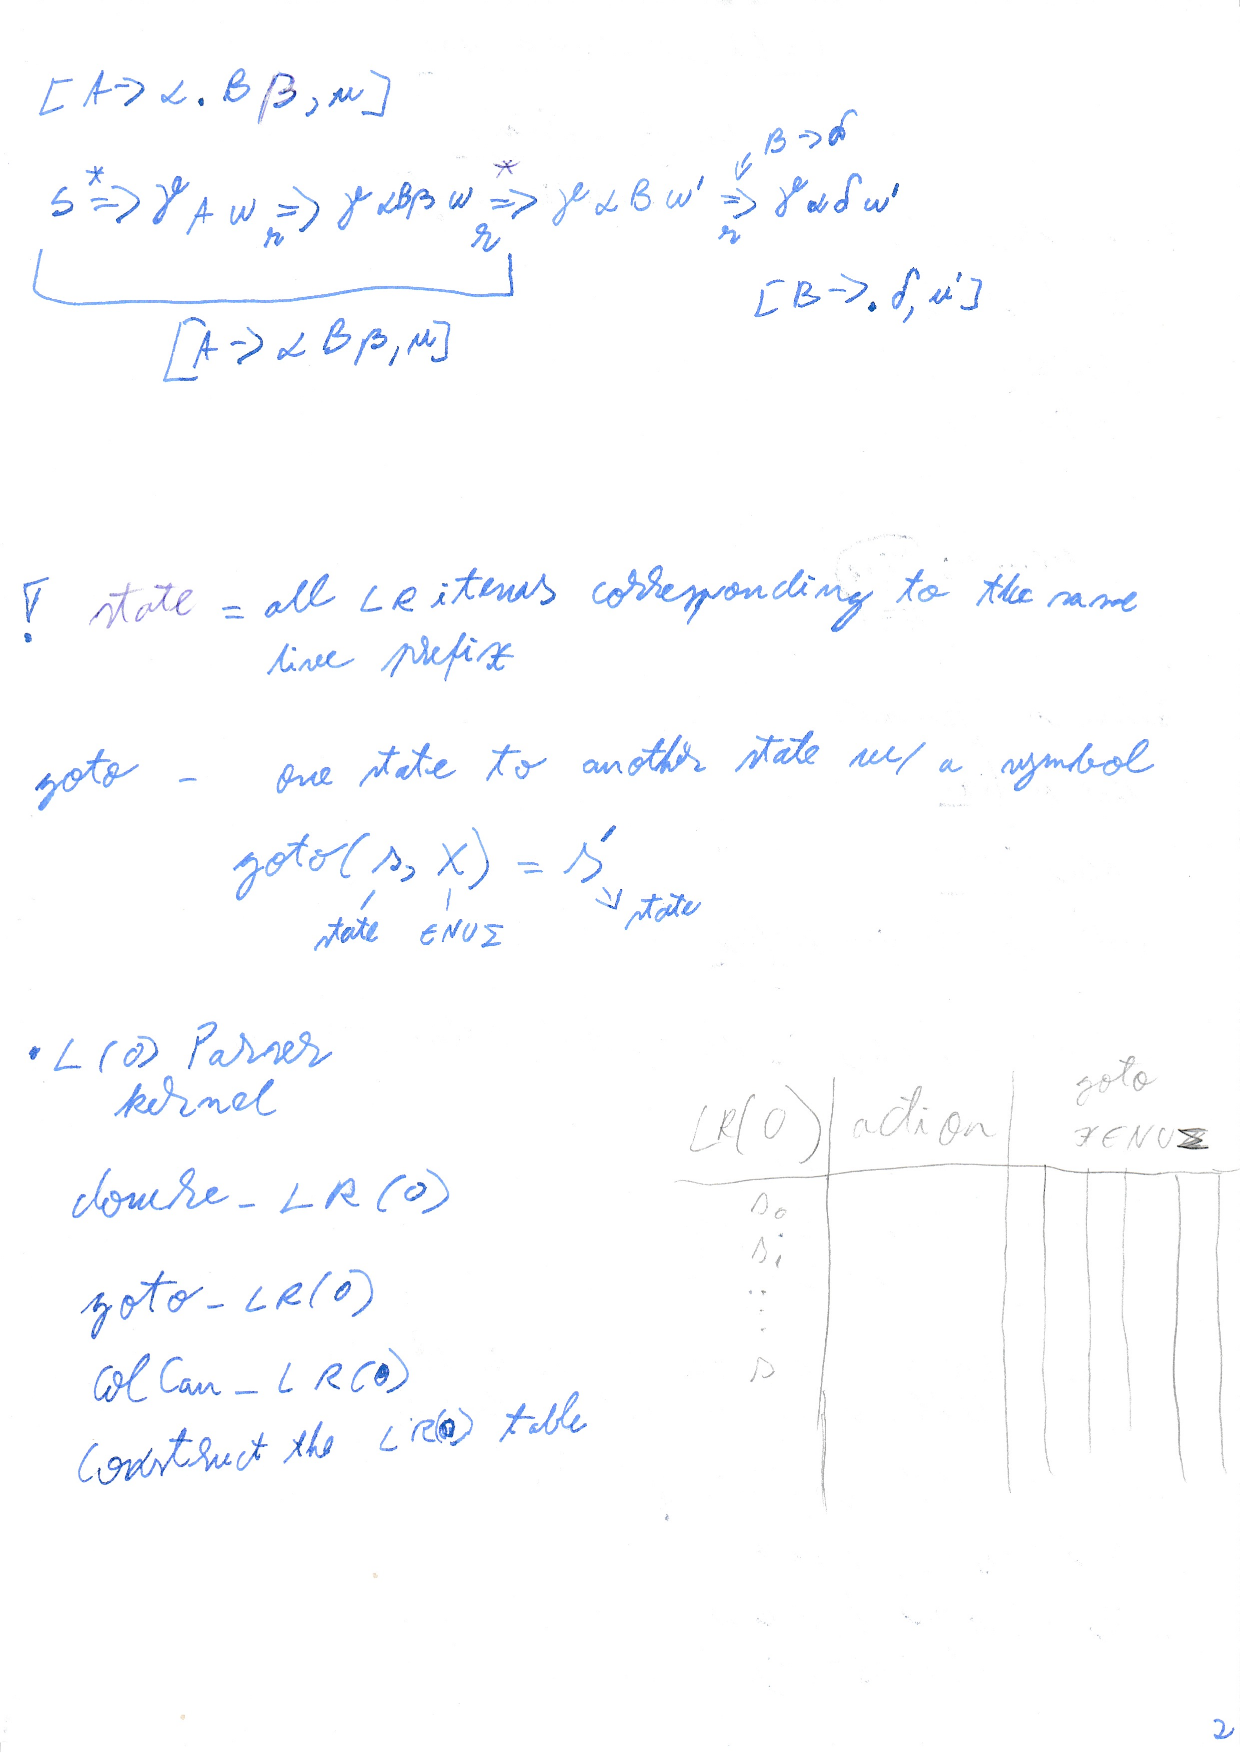 [A -> α . B β, u]
B -> δ
S *=> γ A w =>r γ αBβ w *=>r γ α B w' =>r γ α δ w'
[B -> . δ, u']
[A -> α B β, u]
! state = all LR items corresponding to the same
live prefix
goto - one state to another state w/ a symbol
goto(s, X) = s'
state ∈ N∪Σ state
• L(0) Parser
kernel
closure - LR(0)
goto - LR(0)
Col Can - LR(0)
Construct the LR(0) table
LR(0) action goto
x ∈ N∪Σ
s0
si
..
.
s
2